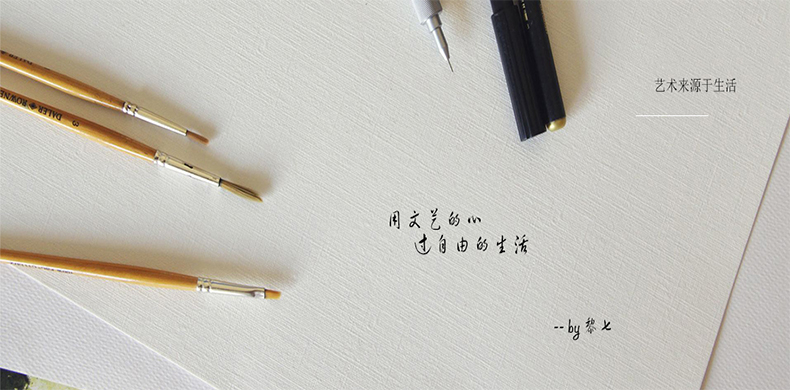 艺术来源于生活
DALER ROWNE
3
用文艺的心
过自由的生活
--by黎七